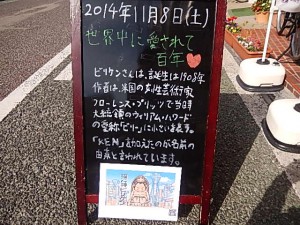 2014年11月8日(土)
世界中に愛されて
百年
ビリケンさんは、誕生は1908年
作者は、米国の女性芸術家
フローレンス・プリッツで当時
大統領のウィリアム・ハワード
の愛称「ビリー」に小さいを表す。
「KEN」を加えたのが名前の
由来と言われています。